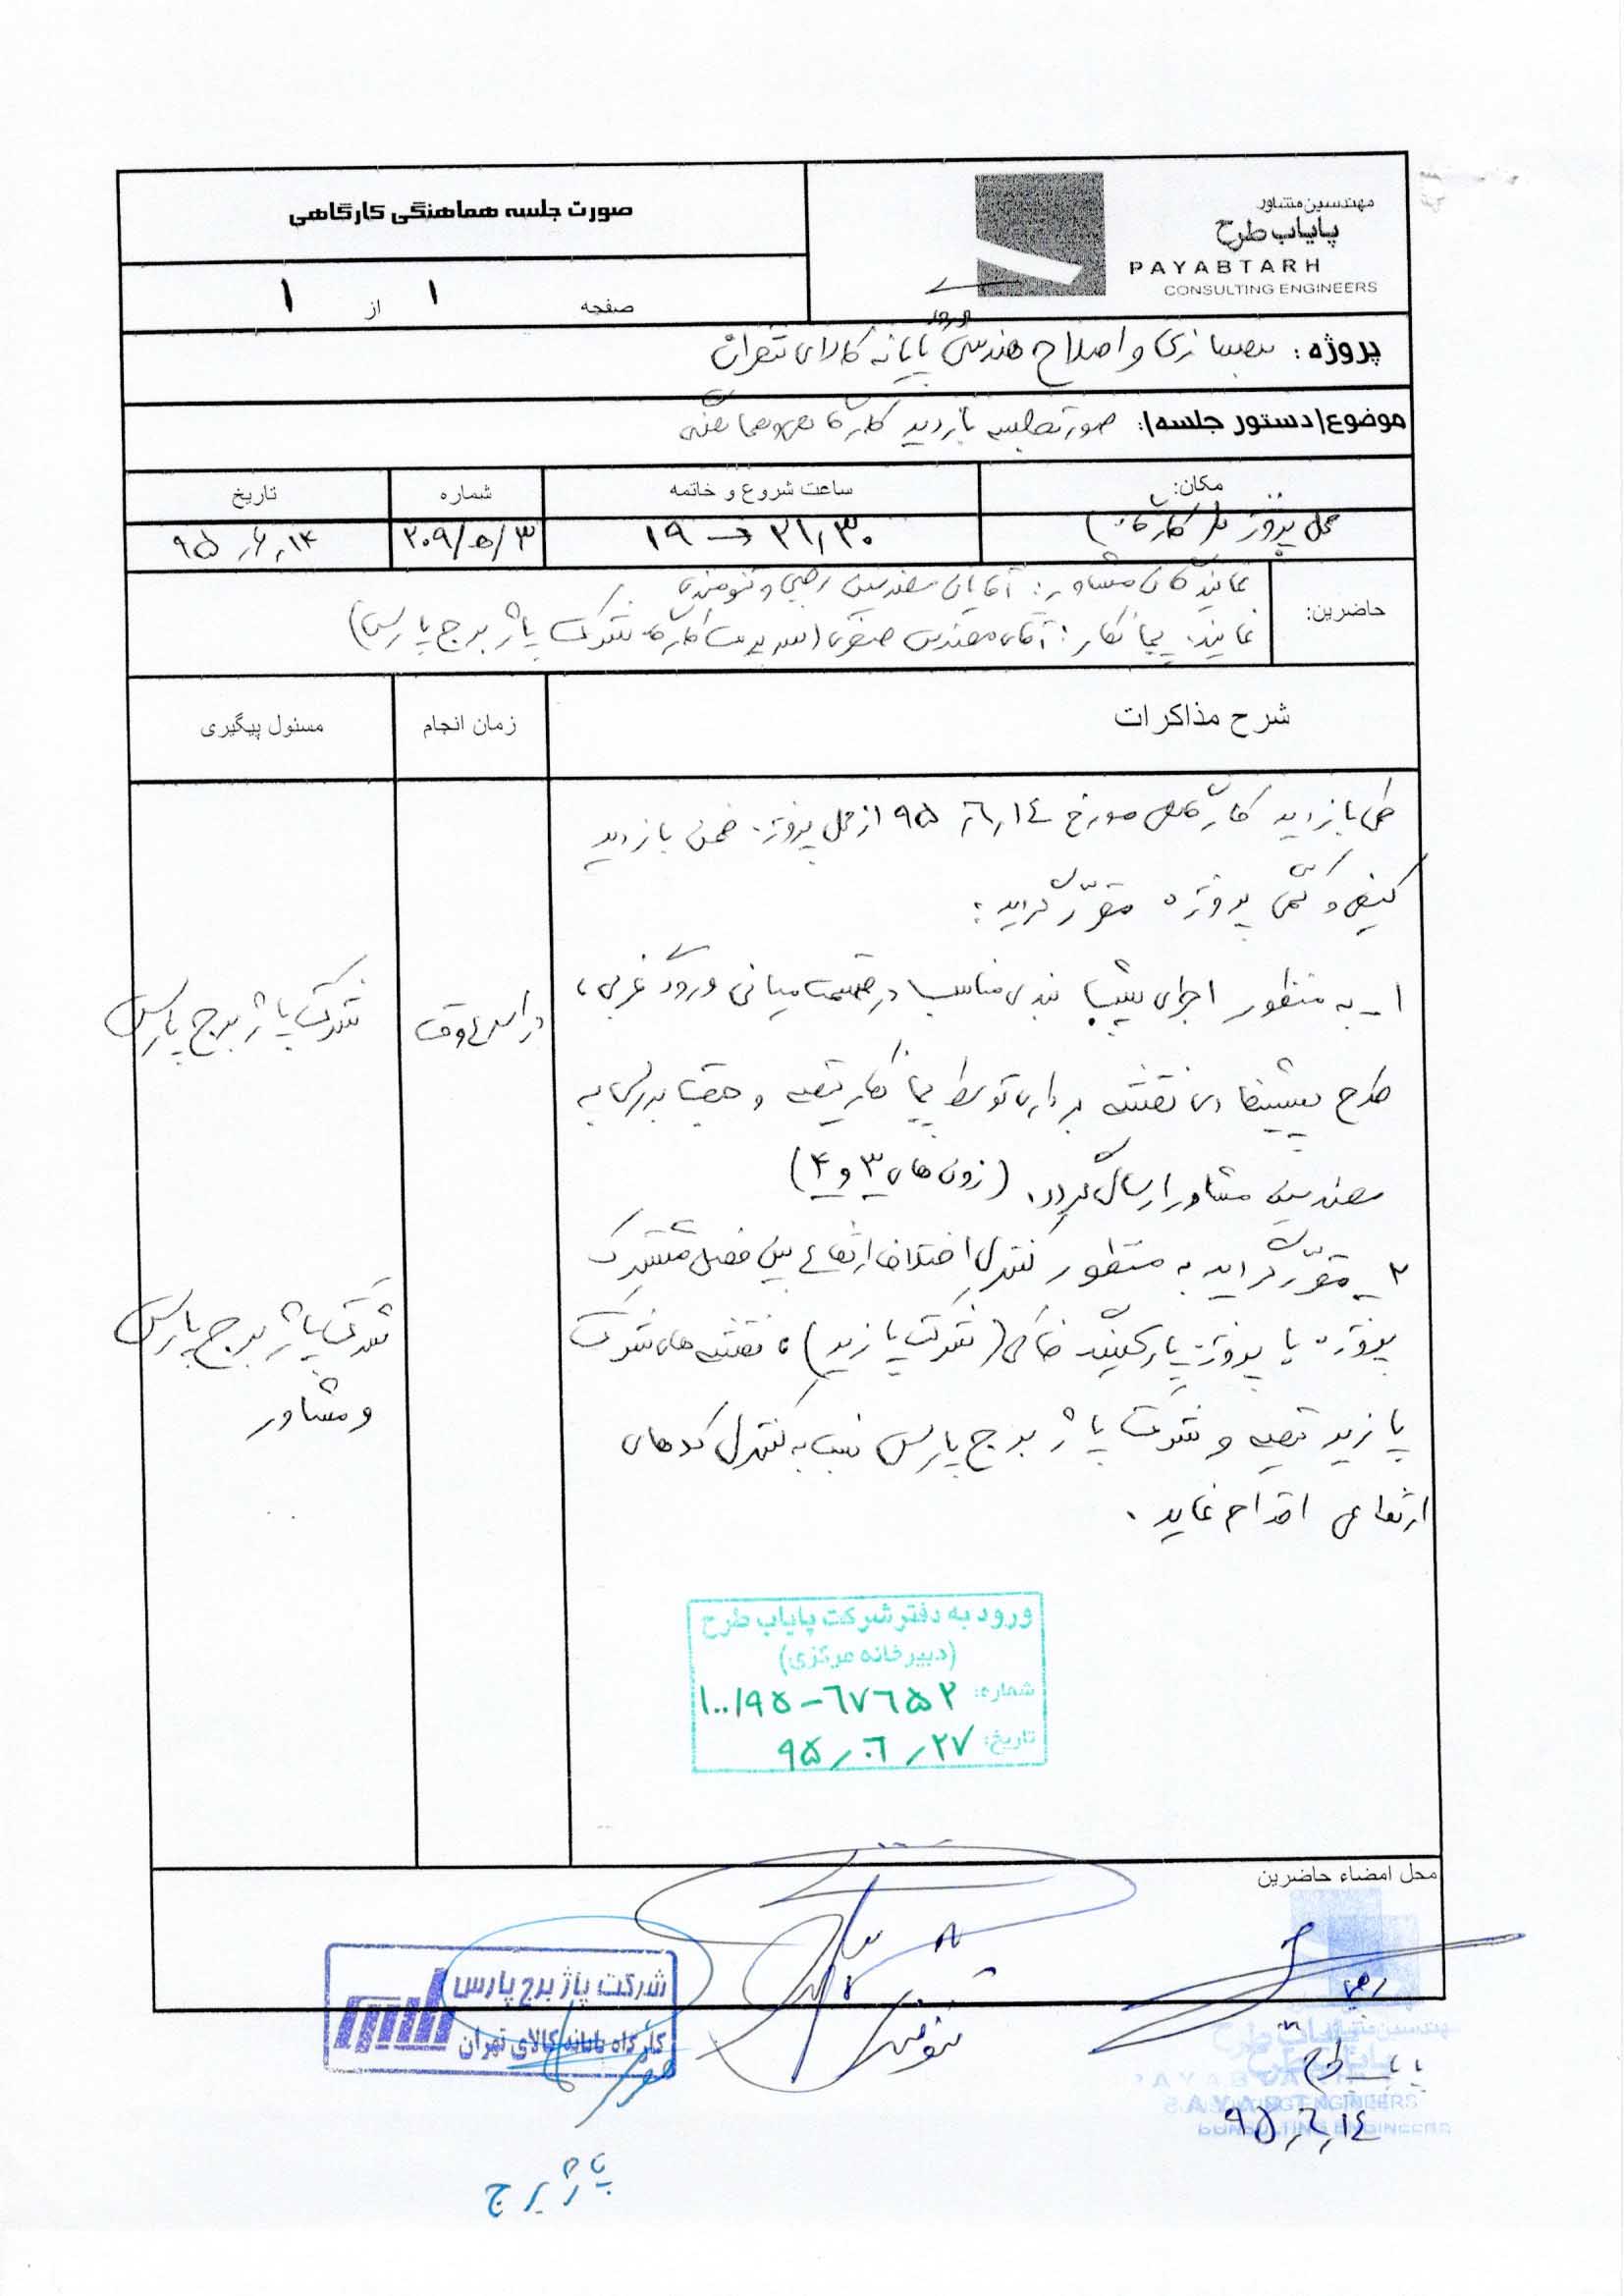 مهندسین مشاور
پایاب طرح
PAYABTARH
CONSULTING ENGINEERS
صورت جلسه هماهنگی کارگاهی
صفحه ۱ از ۱
پروژه: بهسازی و اصلاح هندسی ورودی پایانه کالای تهران
موضوع/دستور جلسه/: صورتجلسه بازدید کارگاهی و هماهنگی
مکان: ساعت شروع و خاتمه شماره تاریخ
محل پروژه (کارگاه) ۱۹ → ۲۱٫۳۰ ۲۰۹/۵/۳ ۹۵٫۶٫۱۴
حاضرین:
نمایندگان مشاور: آقایان مهندسین رجبی و تنومندی
نماینده پیمانکار: آقای مهندس صفری (سرپرست کارگاه شرکت پاژ برج پارس)
شرح مذاکرات زمان انجام مسئول پیگیری
طی بازدید کارگاهی مورخ ۹۵٫۶٫۱٤ از محل پروژه ضمن بازدید
کیفی و کمّی پروژه مقرّر گردید:
۱- به منظور اجرای شیب بندی مناسب در قسمت میانی ورودی غربی،
طرح پیشنهادی نقشه برداری توسط پیمانکار تهیه و جهت بررسی به
مهندسین مشاور ارسال گردد. (زون های ۳ و ۴)
در اسرع وقت
شرکت پاژ برج پارس
۲- مقرّر گردید به منظور کنترل اختلاف ارتفاع بین فصل مشترک
پروژه با پروژه پارکینگ خاکی (شرکت پازید)، نقشه های شرکت
پازید تهیه و شرکت پاژ برج پارس نسبت به کنترل کدهای
ارتفاعی اقدام نماید.
شرکت پاژ برج پارس
و مشاور
ورود به دفتر شرکت پایاب طرح
(دبیرخانه مرکزی)
شماره: ۱۰۰/۹۵-۶۷۶۵۲
تاریخ: ۹۵٫۰۶٫۲۷
محل امضاء حاضرین
رجبی
پایاب طرح
۹۵٫۶٫۱٤
تنومندی
شرکت پاژ برج پارس
کارگاه پایانه کالای تهران
صفری
پاژ برج